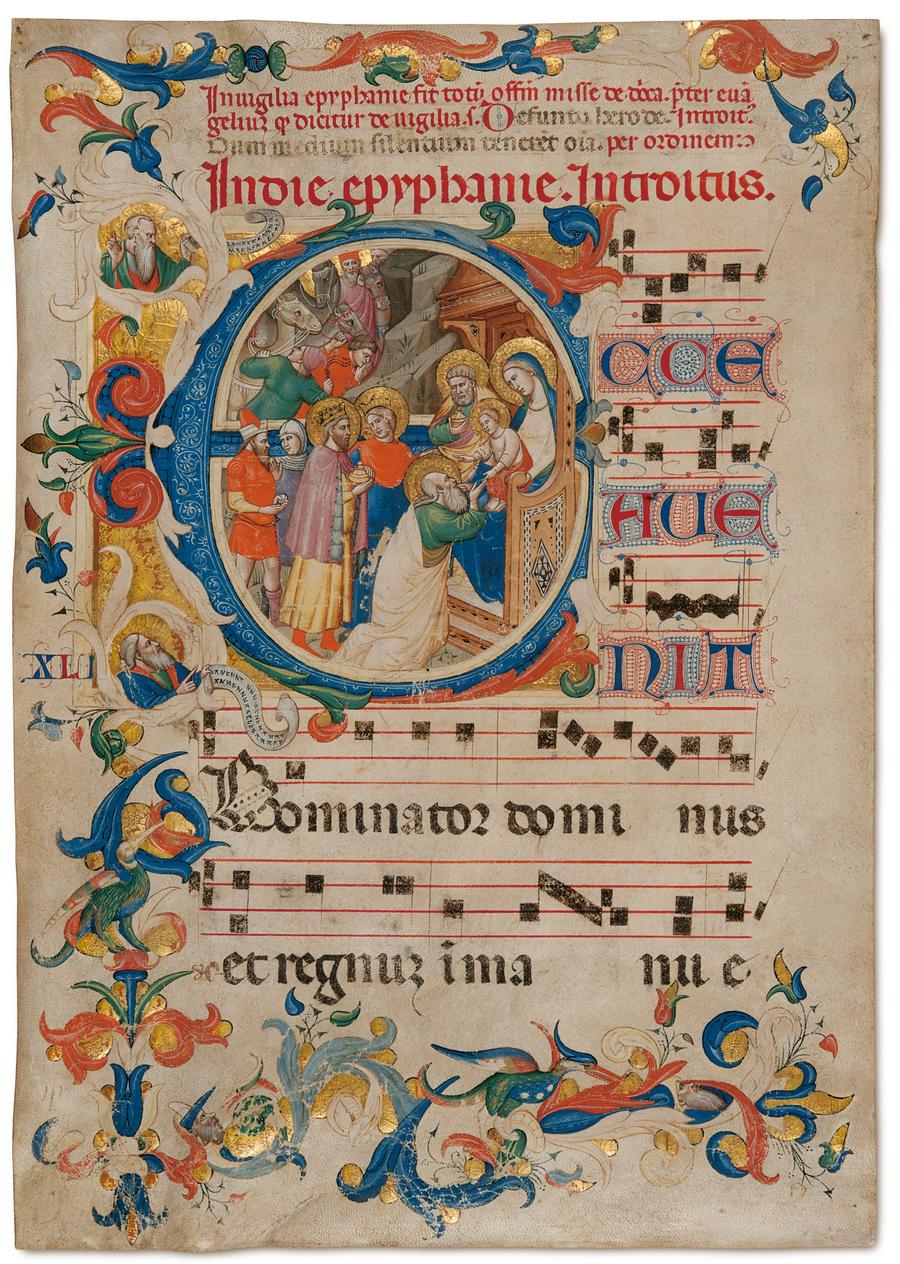 In uigilia epyphanie fit totũ offm̃ misse de dõca. p̃ter euã
geliuʒ qđ dicitur de uigilia. s. Defunto herode. Introit.
Dum medium silencium teneret oĩa. per ordinem
In die epyphanie. Introitus.
E
CCE
AUE
NIT
XLI
Dominator domi nus
et regnuʒ i ma nu e